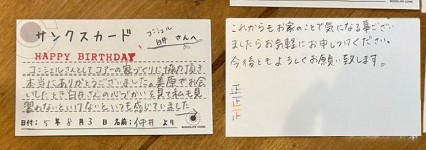 サンクスカード
コンシェル
白井 さんへ
HAPPY BIRTHDAY
コンシェルジュとしてツアーの家づくりに協力頂き
本当にありがとうございました。美原でお会
いしたとき白井さんの心づかいを見て私も見
習わないといけないといつも感じていました
日付: 5年 8月 3日 名前: 仲井 より
これからもお家のことで気になる事ござい
ましたらお気軽にお申しつけください。
今後ともよろしくお願い致します。
正
正
正